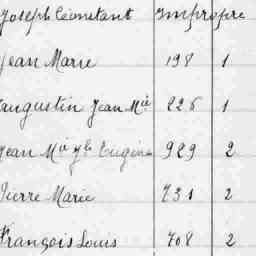 Joseph Constant impropre
Jean Marie 198 1
augustin Jean Mie 226 1
Jean Mie Eugène 929 2
Pierre Marie 731 2
François Louis 708 2